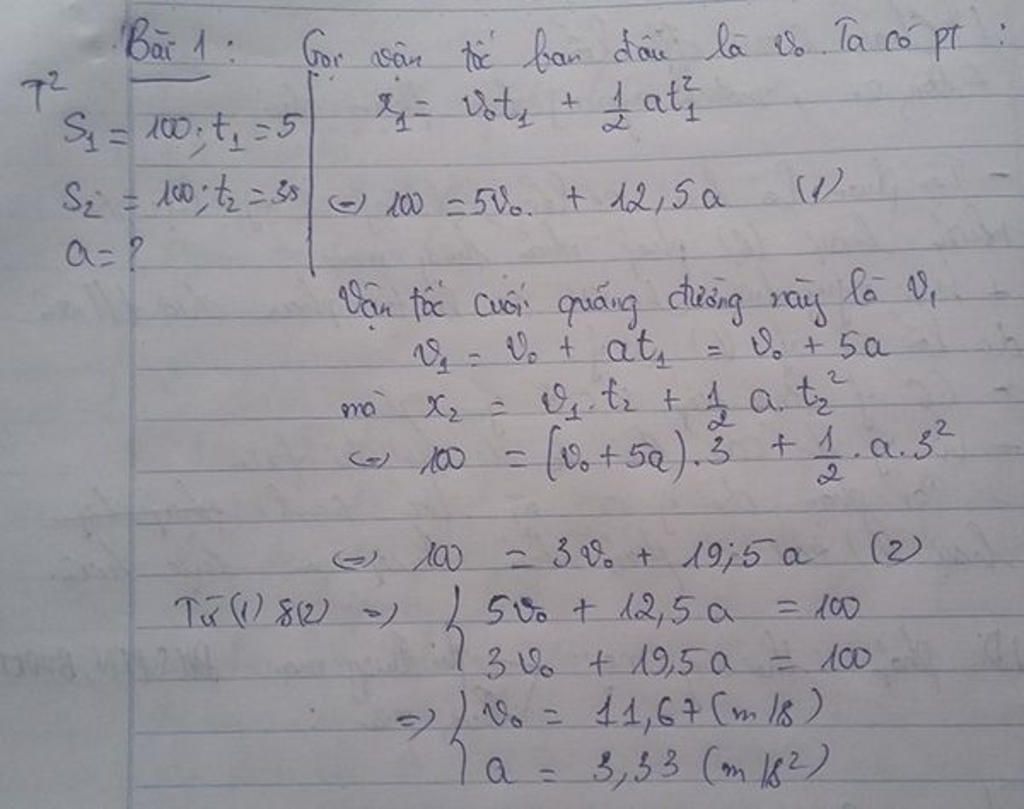 Bài 1: Gọi vận tốc ban đầu là v₀. Ta có pt:
T²
x₁ = v₀t₁ + 1/2 at₁²
S₁ = 100; t₁ = 5
S₂ = 100; t₂ = 3s
⇔ 100 = 5v₀. + 12,5a (1)
a = ?
Vận tốc cuối quãng đường này là v₁
v₁ = v₀ + at₁ = v₀ + 5a
mà x₂ = v₁.t₂ + 1/2 a.t₂²
⇔ 100 = (v₀ + 5a).3 + 1/2.a.3²
⇔ 100 = 3v₀ + 19,5a (2)
Từ (1) &(2) => { 5v₀ + 12,5a = 100
3v₀ + 19,5a = 100
=> { v₀ = 11,67 (m/s)
a = 3,33 (m/s²)